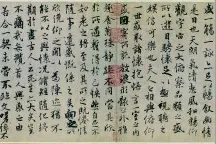 盛一觴一詠亦足以暢敘幽情
是日也天朗氣清惠風和暢仰
觀宇宙之大俯察品類之盛
所以遊目騁懷足以極視聽之
娛信可樂也夫人之相與俯仰
一世或取諸懷抱悟言一室之內
或因寄所託放浪形骸之外雖
趣舍萬殊靜躁不同當其欣
於所遇暫得於己快然自足不
知老之將至及其所之既惓情
隨事遷感慨係之矣向之所欣
俛仰之間以為陳迹猶不
能不以之興懷況脩短隨化終
期於盡古人云死生亦大矣豈
不痛哉每攬昔人興感之由
若合一契未嘗不臨文嗟悼不